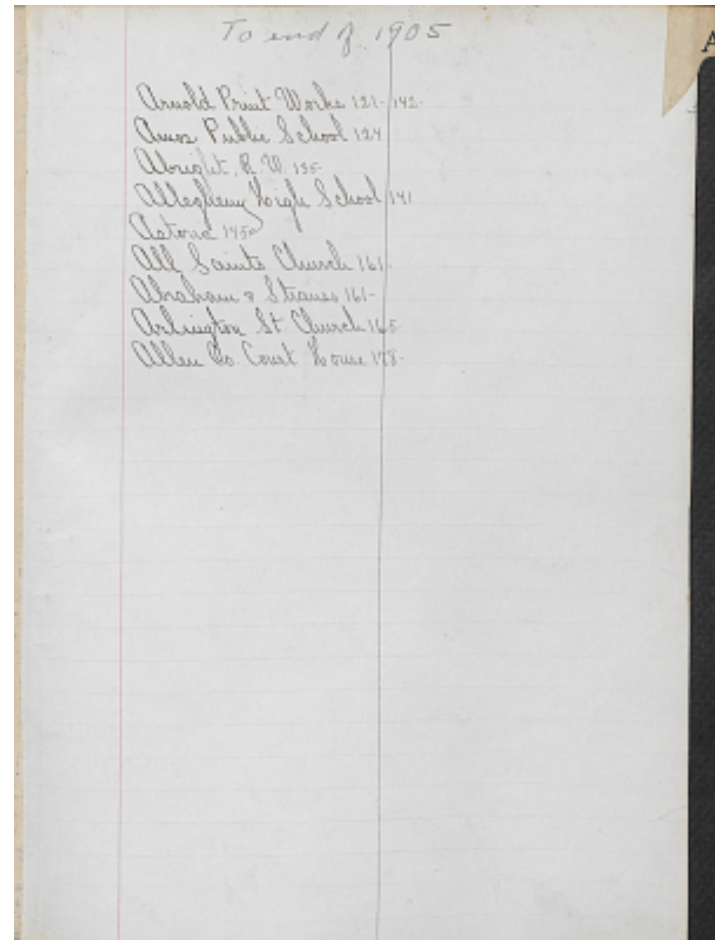 To end of 1905
A
Arnold Print Works 121-142-
Amos Public School 124
Abright, R. W. 135-
Allegheny High School 141
Astoria 145
All Saints Church 161-
Abraham & Strauss 161-
Arlington St. Church 165
Allen Co. Court House 178-